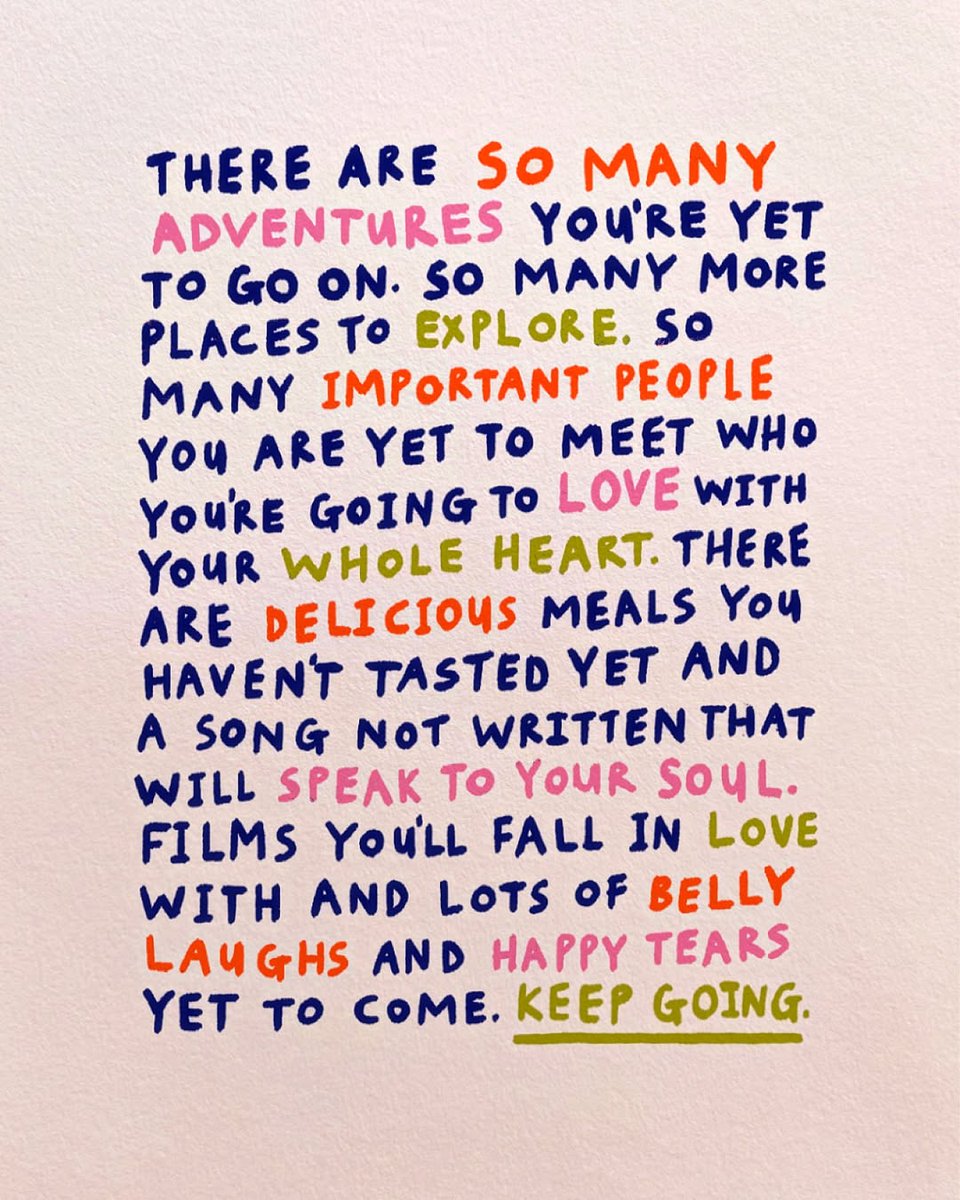 THERE ARE SO MANY
ADVENTURES YOU'RE YET
TO GO ON. SO MANY MORE
PLACES TO EXPLORE. SO
MANY IMPORTANT PEOPLE
YOU ARE YET TO MEET WHO
YOU'RE GOING TO LOVE WITH
YOUR WHOLE HEART. THERE
ARE DELICIOUS MEALS YOU
HAVEN'T TASTED YET AND
A SONG NOT WRITTEN THAT
WILL SPEAK TO YOUR SOUL.
FILMS YOU'LL FALL IN LOVE
WITH AND LOTS OF BELLY
LAUGHS AND HAPPY TEARS
YET TO COME. KEEP GOING.